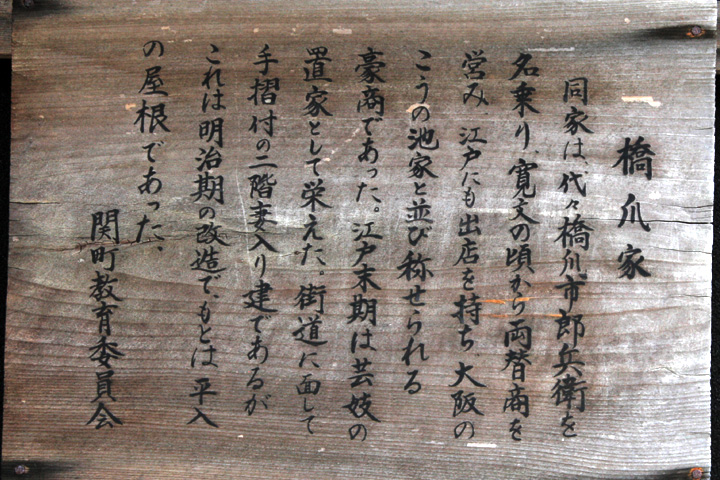 橋爪家
同家は、代々橋爪市郎兵衛を
名乗り、寛文の頃から両替商を
営み、江戸にも出店を持ち、大阪の
こうの池家と並び称せられる
豪商であった。江戸末期は芸妓の
置家として栄えた。街道に面して
手摺付の二階妻入り建であるが
これは明治期の改造で、もとは平入
の屋根であった、
関町教育委員会